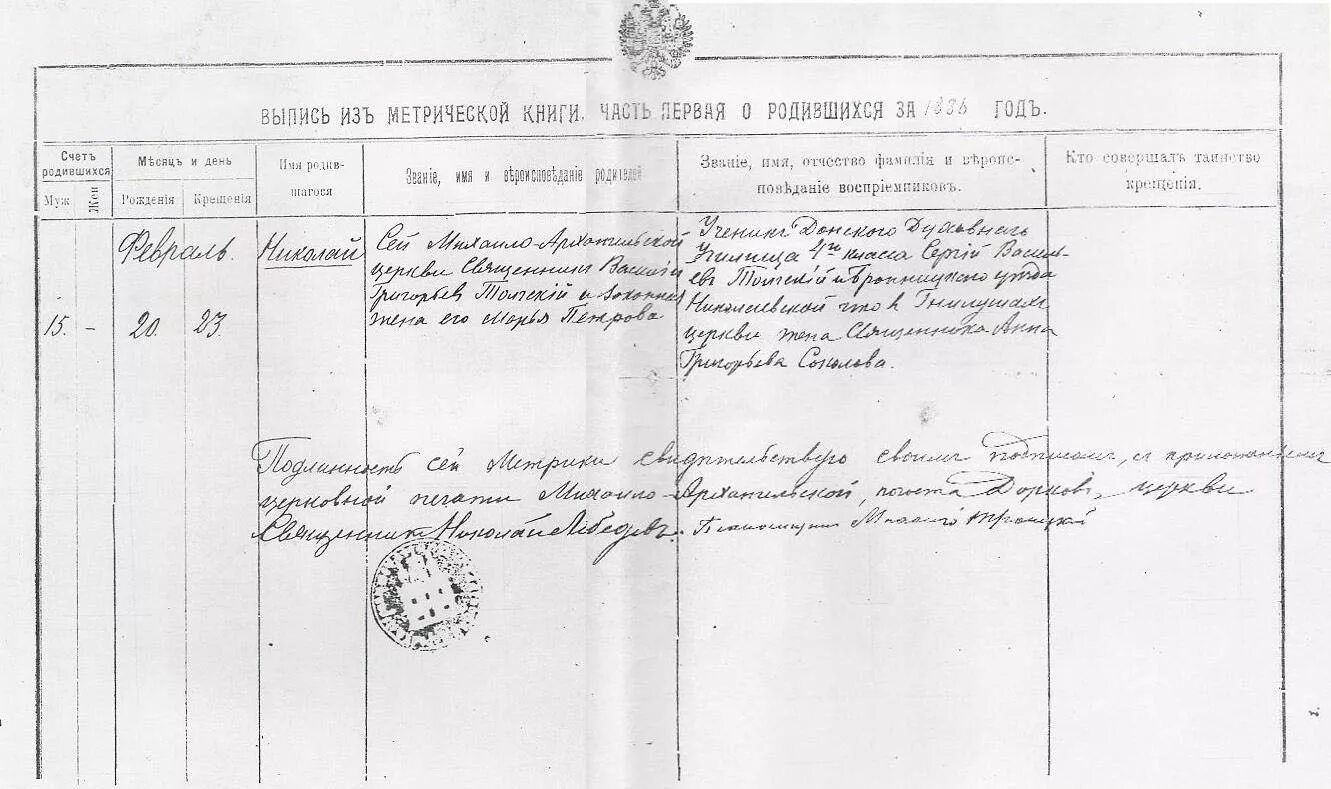 ВЫПИСЬ ИЗЪ МЕТРИЧЕСКОЙ КНИГИ, ЧАСТЬ ПЕРВАЯ О РОДИВШИХСЯ ЗА ГОДЪ.
Счетъ родившихся
Муж
Жен
Мѣсяцъ и день
Рожденія
Крещенія
Имя родив-
шагося
Званіе, имя и вѣроисповѣданіе родителей
Званіе, имя, отчество фамилія и вѣроис-
повѣданіе воспріемниковъ.
Кто совершалъ таинство
крещенія.
15.
-
Февраль.
20.
23.
Николай
Сей Михаило-Архангельской
церкви Священникъ Василій
Григорьев Толгскій и законная
жена его Марья Петрова
Ученикъ Донского Духовнаго
Училища 4го класса Сергій Василь-
евъ Толгскій и Бронницкаго уѣзда
Николаевской что в Гнилушахъ
церкви жена Священника Анна
Григорьева Соколова.
Подлинность сей Метрики свидѣтельствую своимъ подписомъ, съ приложеніемъ
церковной печати Михаило-Архангельской, погоста Доркова, церкви
Священникъ Николай Лебедевъ. Псаломщикъ Троицкій